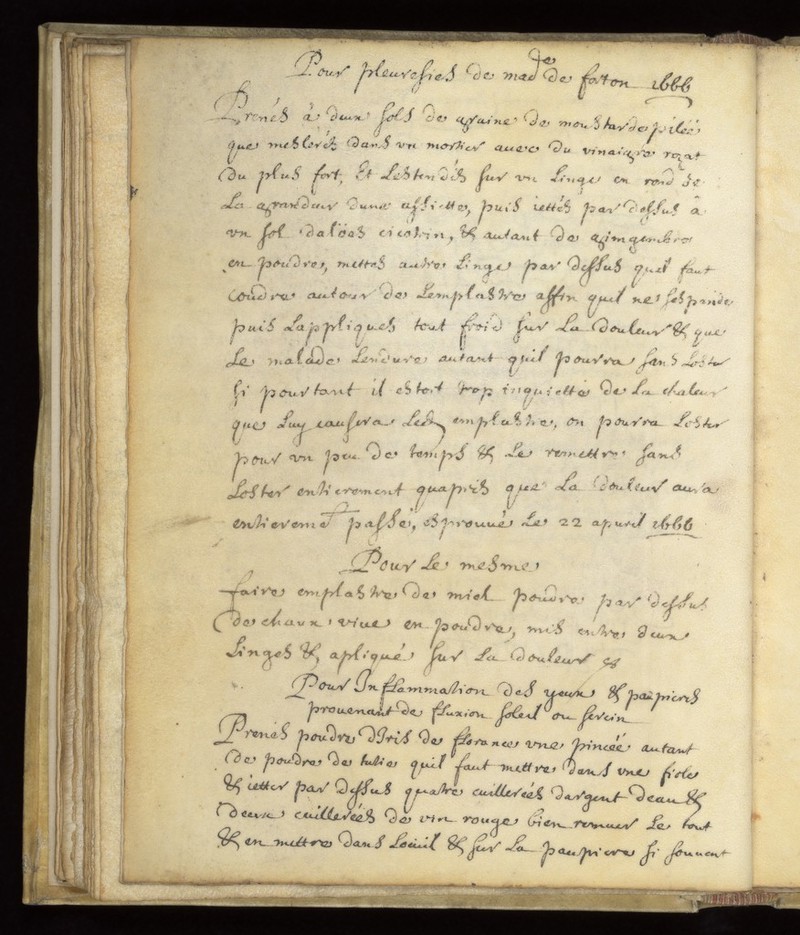 Pour pleuresies de mad.de de forton 1666
Prenés â deux sols de graine de moustarde pilèe
que meslerés dans vn mortier auec du vinaigre rozat
du plus fort, Et Lestendés sur vn Linge en rond de
La grandeur dune assiette, puis iettés par dessus â
vn sol daloes cicotrin, & autant de gimgembre
en poudre, mettés autre Linge par dessus quil faut
coudre autour de Lemplastre affin quil ne sespande
puis Lappliqués tout froid sur La douleur & que
Le malade Lendure autant quil pourra sans Loster
si pourtant il estoit trop inquietté de La chaleur
que Luy causera Led emplastre, on pourra Loster
pour vn peu de temps & Le remettre sans
Loster entierement quapres que La douleur aura
entieremet passé, esprouué Le 22 apuril 1666
Pour Le mesme
faire emplastre de miel poudre par dessus
de chaux viue en poudre, mis entre deux
Linges & apliqué sur La douleur
Pour Inflammation des yeux & paupieres
prouenant de fluxion soleil ou serein
Prenés poudre dIris de florance vne pincèe autant
de poudre de tutie quil faut mettre dans vne fiole
& ietter par dessus quatre cuillerèes dargent deau &
deux cuillerèes de vin rouge bien remuer Le tout
& en mettre dans Loeuil & sur La paupiere si souuent